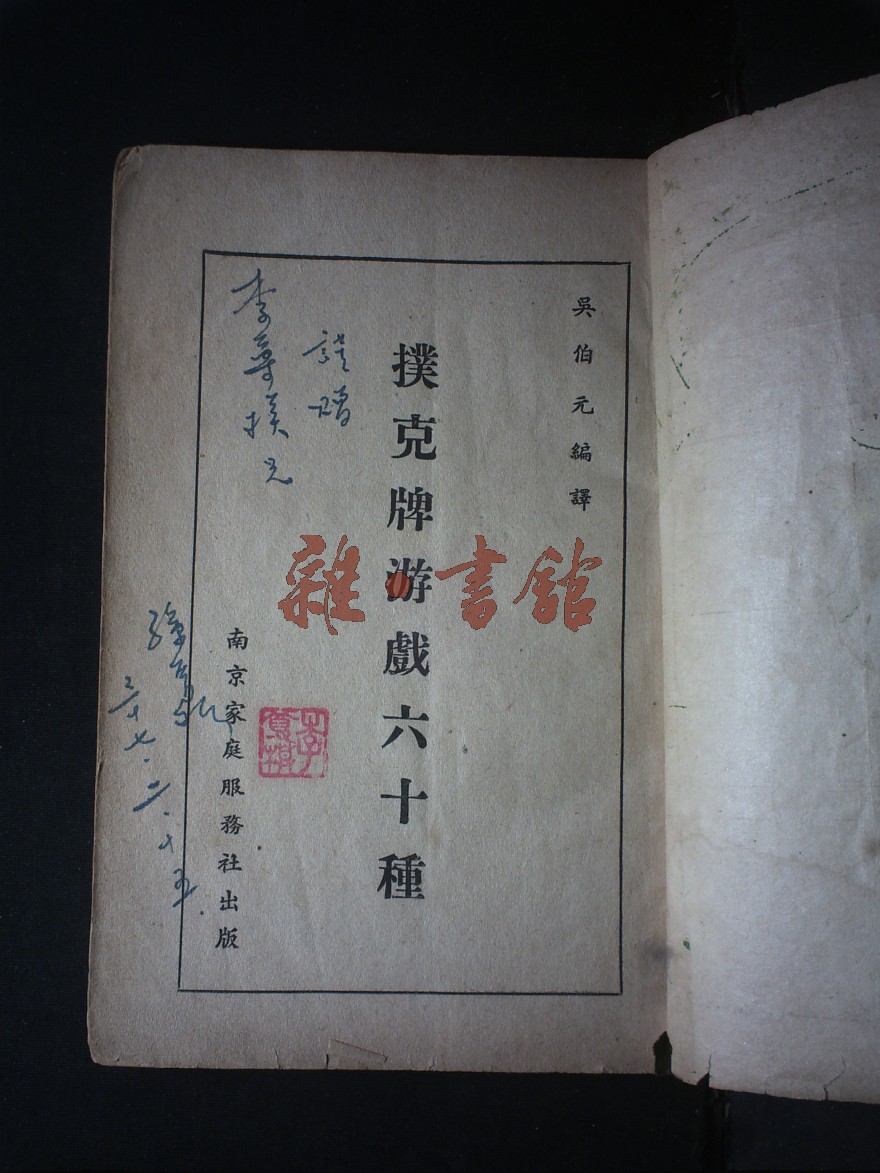 吳伯元編譯
撲克牌游戲六十種
南京家庭服務社出版
謹贈
李
兄
三十七.二.十五.
雜書館